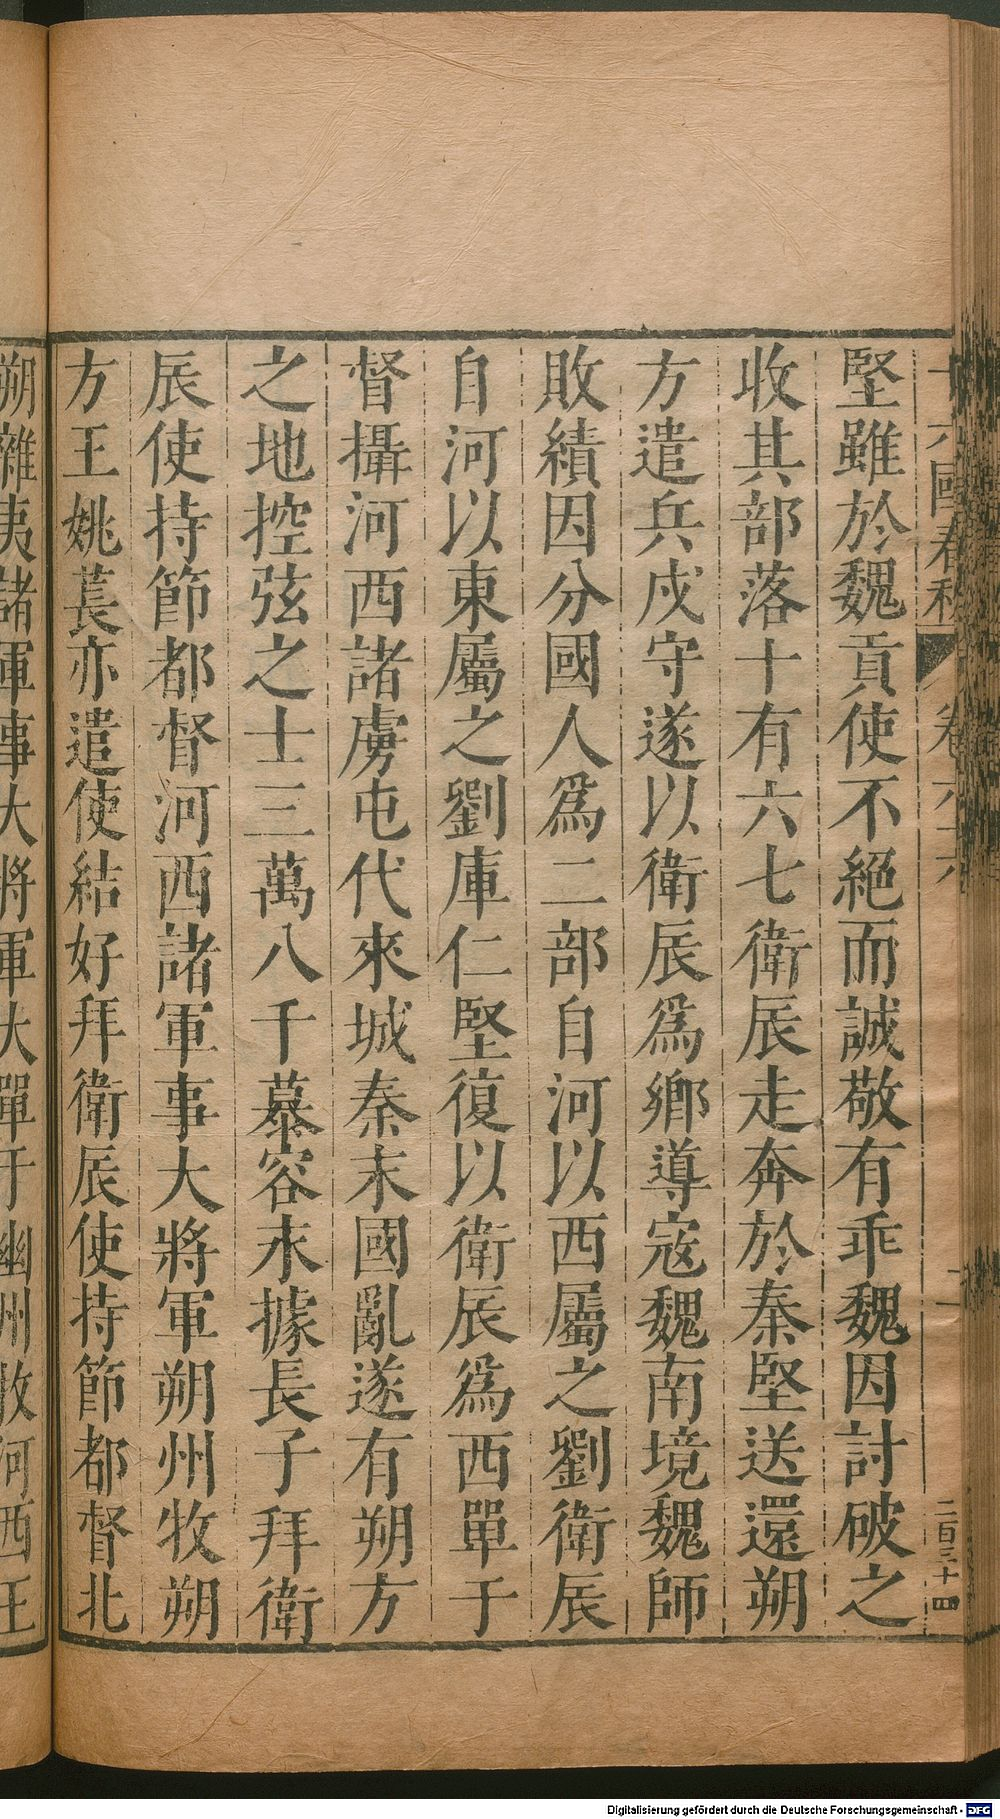 十六國春秋 卷六六 二百三十四
堅雖於魏貢使不絕而誠敬有乖魏因討破之
收其部落十有六七衛辰走奔於秦堅送還朔
方遣兵戍守遂以衛辰爲鄉導寇魏南境魏師
敗績因分國人爲二部自河以西屬之劉衛辰
自河以東屬之劉庫仁堅復以衛辰爲西單于
督攝河西諸虜屯代來城秦末國亂遂有朔方
之地控弦之士三萬八千慕容永據長子拜衛
辰使持節都督河西諸軍事大將軍朔州牧朔
方王姚萇亦遣使結好拜衛辰使持節都督北
朔雜夷諸軍事大將軍大單于幽州牧河西王
Digitalisierung gefördert durch die Deutsche Forschungsgemeinschaft - DFG